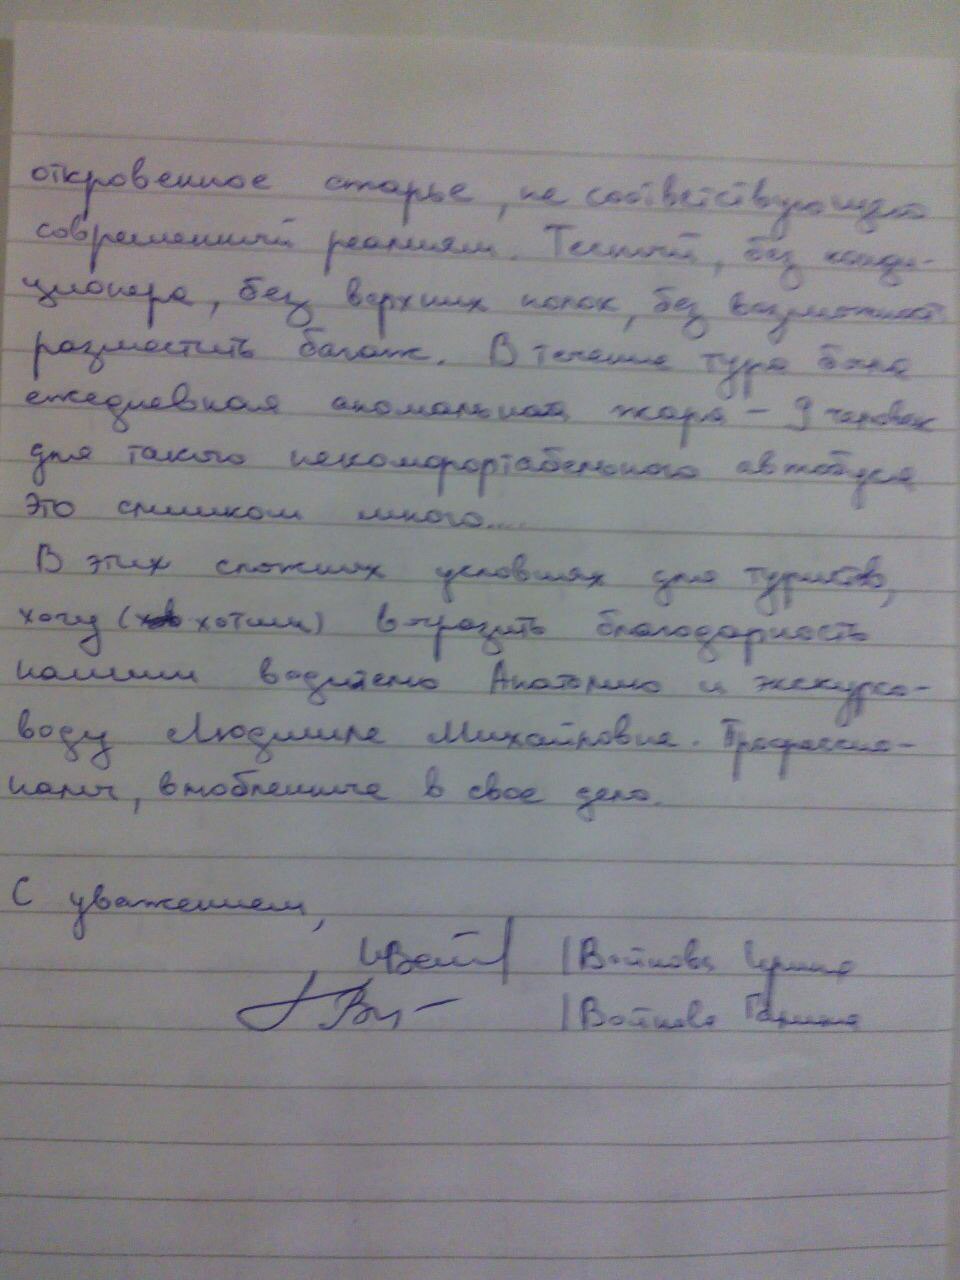 откровенное старье, не соответствующее
современным реалиям. Тесный, без конди-
ционера, без верхних полок, без возможност
разместить багаж. В течение тура была
ежедневная аномальная жара - 9 человек
для такого некомфортабельного автобуса
это слишком много....
В этих сложных условиях для туристов,
хочу (хотим) выразить благодарность
нашим водителю Анатолию и экскурсо-
воду Людмиле Михайловне. Профессио-
налы, влюбленные в свое дело.
С уважением,
/Войнова Ирина
/Войнова Галина